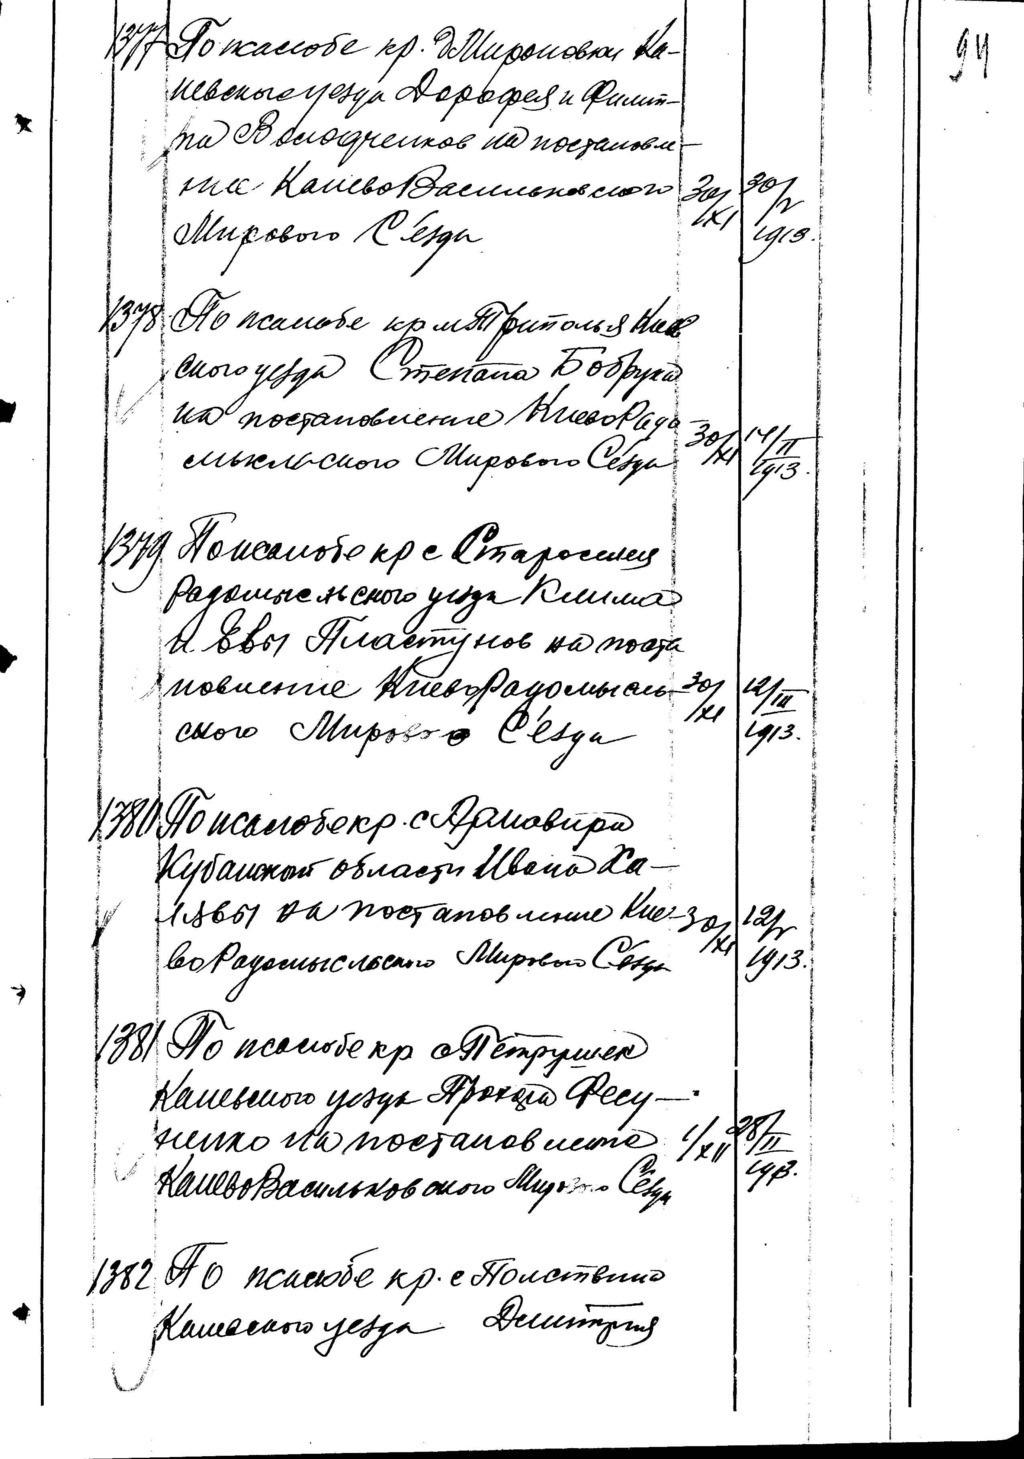 94
1377 По жалобе кр. д Мироновки Ка-
невского уезда Дорофея и Филип-
па Володченков на постановле-
ние КаневоВасильковского 30/XI 30/V
Мирового Съезда 1913.
1378 По жалобе кр м Триполья Киев
ского уезда Степана Бобрука
на постановление КиевоРадо 30/XI 14/II
мысльского Мирового Съезда 1913.
1379 По жалобе кр с Староселья
Радомысльского уезда Клима
и Евы Пластунов на поста
новление КиевоРадомысль- 30/XI 12/III
ского Мирового Съезда 1913.
1380 По жалобе кр. с Армавира
Кубанской области Ивана Ха-
лявы на постановление Кие- 30/XI 12/V
воРадомысльского Мирового Съезда 1913.
1381 По жалобе кр с Петрушек
Каневского уезда Прокопа Фесу-
ненко на постановление 1/XII 28/II
КаневоВасильковского Мирового Съезда 1913.
1382 По жалобе кр. с Полствина
Каневского уезда Дмитрия